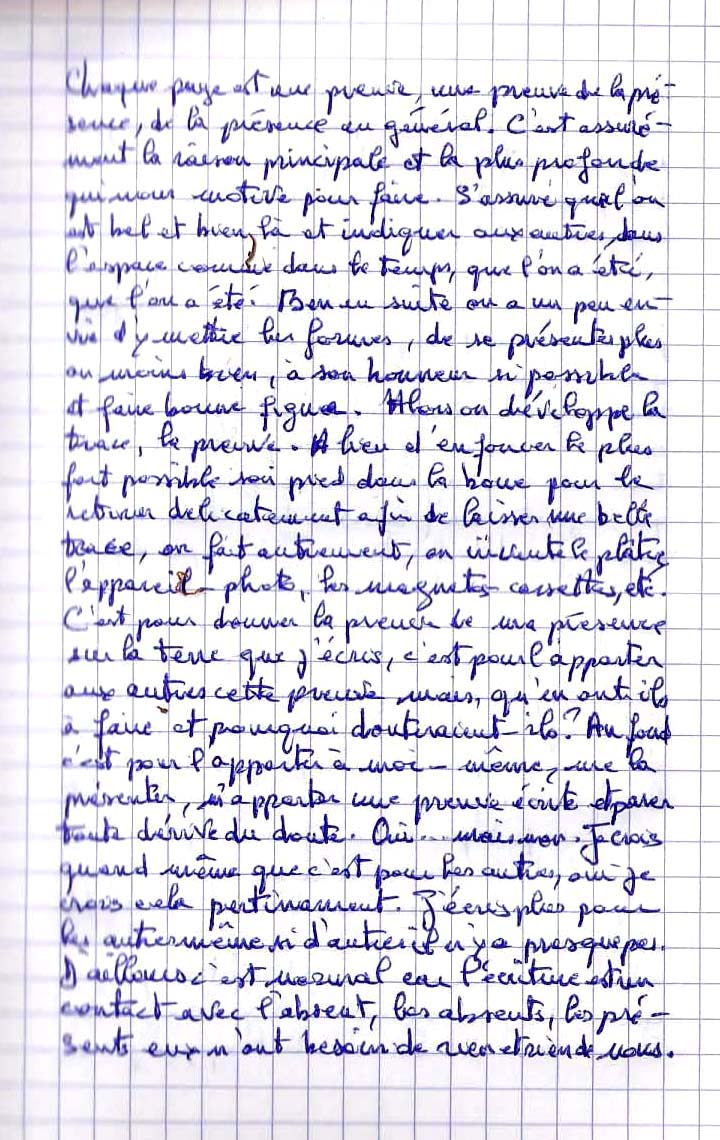 Chaque page est une preuve, une preuve de la pré-
sence, de la présence en général. C'est assuré-
ment la raison principale et la plus profonde
qui nous motive pour faire. S'assuré que l'on
est bel et bien là et indiquer aux autres, dans
l'espace comme dans le temps, que l'on a été,
que l'on a été. Ben en suite on a un peu en-
vie d'y mettre les formes, de se présenter plus
ou moins bien, à son honneur si possible
et faire bonne figure. Alors on développe la
trace, la preuve. A lieu d'enfoncer le plus
fort possible son pied dans la boue pour le
retirer delicatement afin de laisser une belle
trace, on fait autrement, on invente le plâtre
l'appareil photo, les magnetos cassettes, etc.
C'est pour donner la preuve de ma présence
sur la terre que j'écris, c'est pour l'apporter
aux autres cette preuve mais, qu'en ont ils
à faire et pourquoi douteraient-ils? Au fond
c'est pour l'apporter à moi-même, me la
présenter, m'apporter une preuve écrite et parer
toute dérive du doute. Oui... mais non. Je crois
quand même que c'est pour les autres, oui je
crois cela pertinament. J'écris plus pour
les autres même si d'autres il n'y a presque pas.
D'ailleurs c'est normal car l'écriture est un
contact avec l'absent, les absents, les pré-
sents eux n'ont besoin de rien et rien de nous.